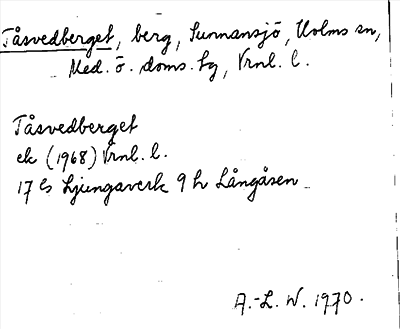 Tåsvedberget, berg, Sunnansjö, Holms sn,
Med. ö. doms. hg, Vrnl. l.
Tåsvedberget
ek (1968) Vrnl. l.
17 Es Ljungaverk 9 h Långåsen
A.-L. W. 1970.